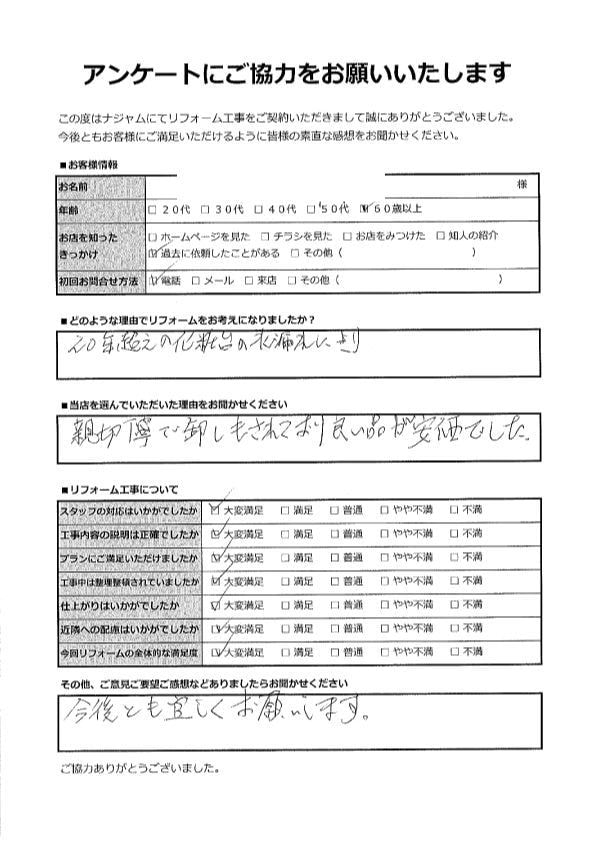 アンケートにご協力をお願いいたします
この度はナジャムにてリフォーム工事をご契約いただきまして誠にありがとうございました。
今後ともお客様にご満足いただけるように皆様の素直な感想をお聞かせください。
■お客様情報
お名前 様
年齢 □ 20代 □ 30代 □ 40代 □ 50代 ☑ 60歳以上
お店を知った □ ホームページを見た □ チラシを見た □ お店をみつけた □ 知人の紹介
きっかけ ☑ 過去に依頼したことがある □ その他（ ）
初回お問合せ方法 ☑ 電話 □ メール □ 来店 □ その他（ ）
■どのような理由でリフォームをお考えになりましたか？
20年超えの化粧台の水漏れにより
■当店を選んでいただいた理由をお聞かせください
親切丁寧で卸しもされており良い品が安価でした。
■リフォーム工事について
スタッフの対応はいかがでしたか ☑ 大変満足 □ 満足 □ 普通 □ やや不満 □ 不満
工事内容の説明は正確でしたか ☑ 大変満足 □ 満足 □ 普通 □ やや不満 □ 不満
プランにご満足いただけましたか ☑ 大変満足 □ 満足 □ 普通 □ やや不満 □ 不満
工事中は整理整頓されていましたか ☑ 大変満足 □ 満足 □ 普通 □ やや不満 □ 不満
仕上がりはいかがでしたか ☑ 大変満足 □ 満足 □ 普通 □ やや不満 □ 不満
近隣への配慮はいかがでしたか ☑ 大変満足 □ 満足 □ 普通 □ やや不満 □ 不満
今回リフォームの全体的な満足度 ☑ 大変満足 □ 満足 □ 普通 □ やや不満 □ 不満
その他、ご意見ご要望ご感想などありましたらお聞かせください
今後とも宜しくお願いします。
ご協力ありがとうございました。